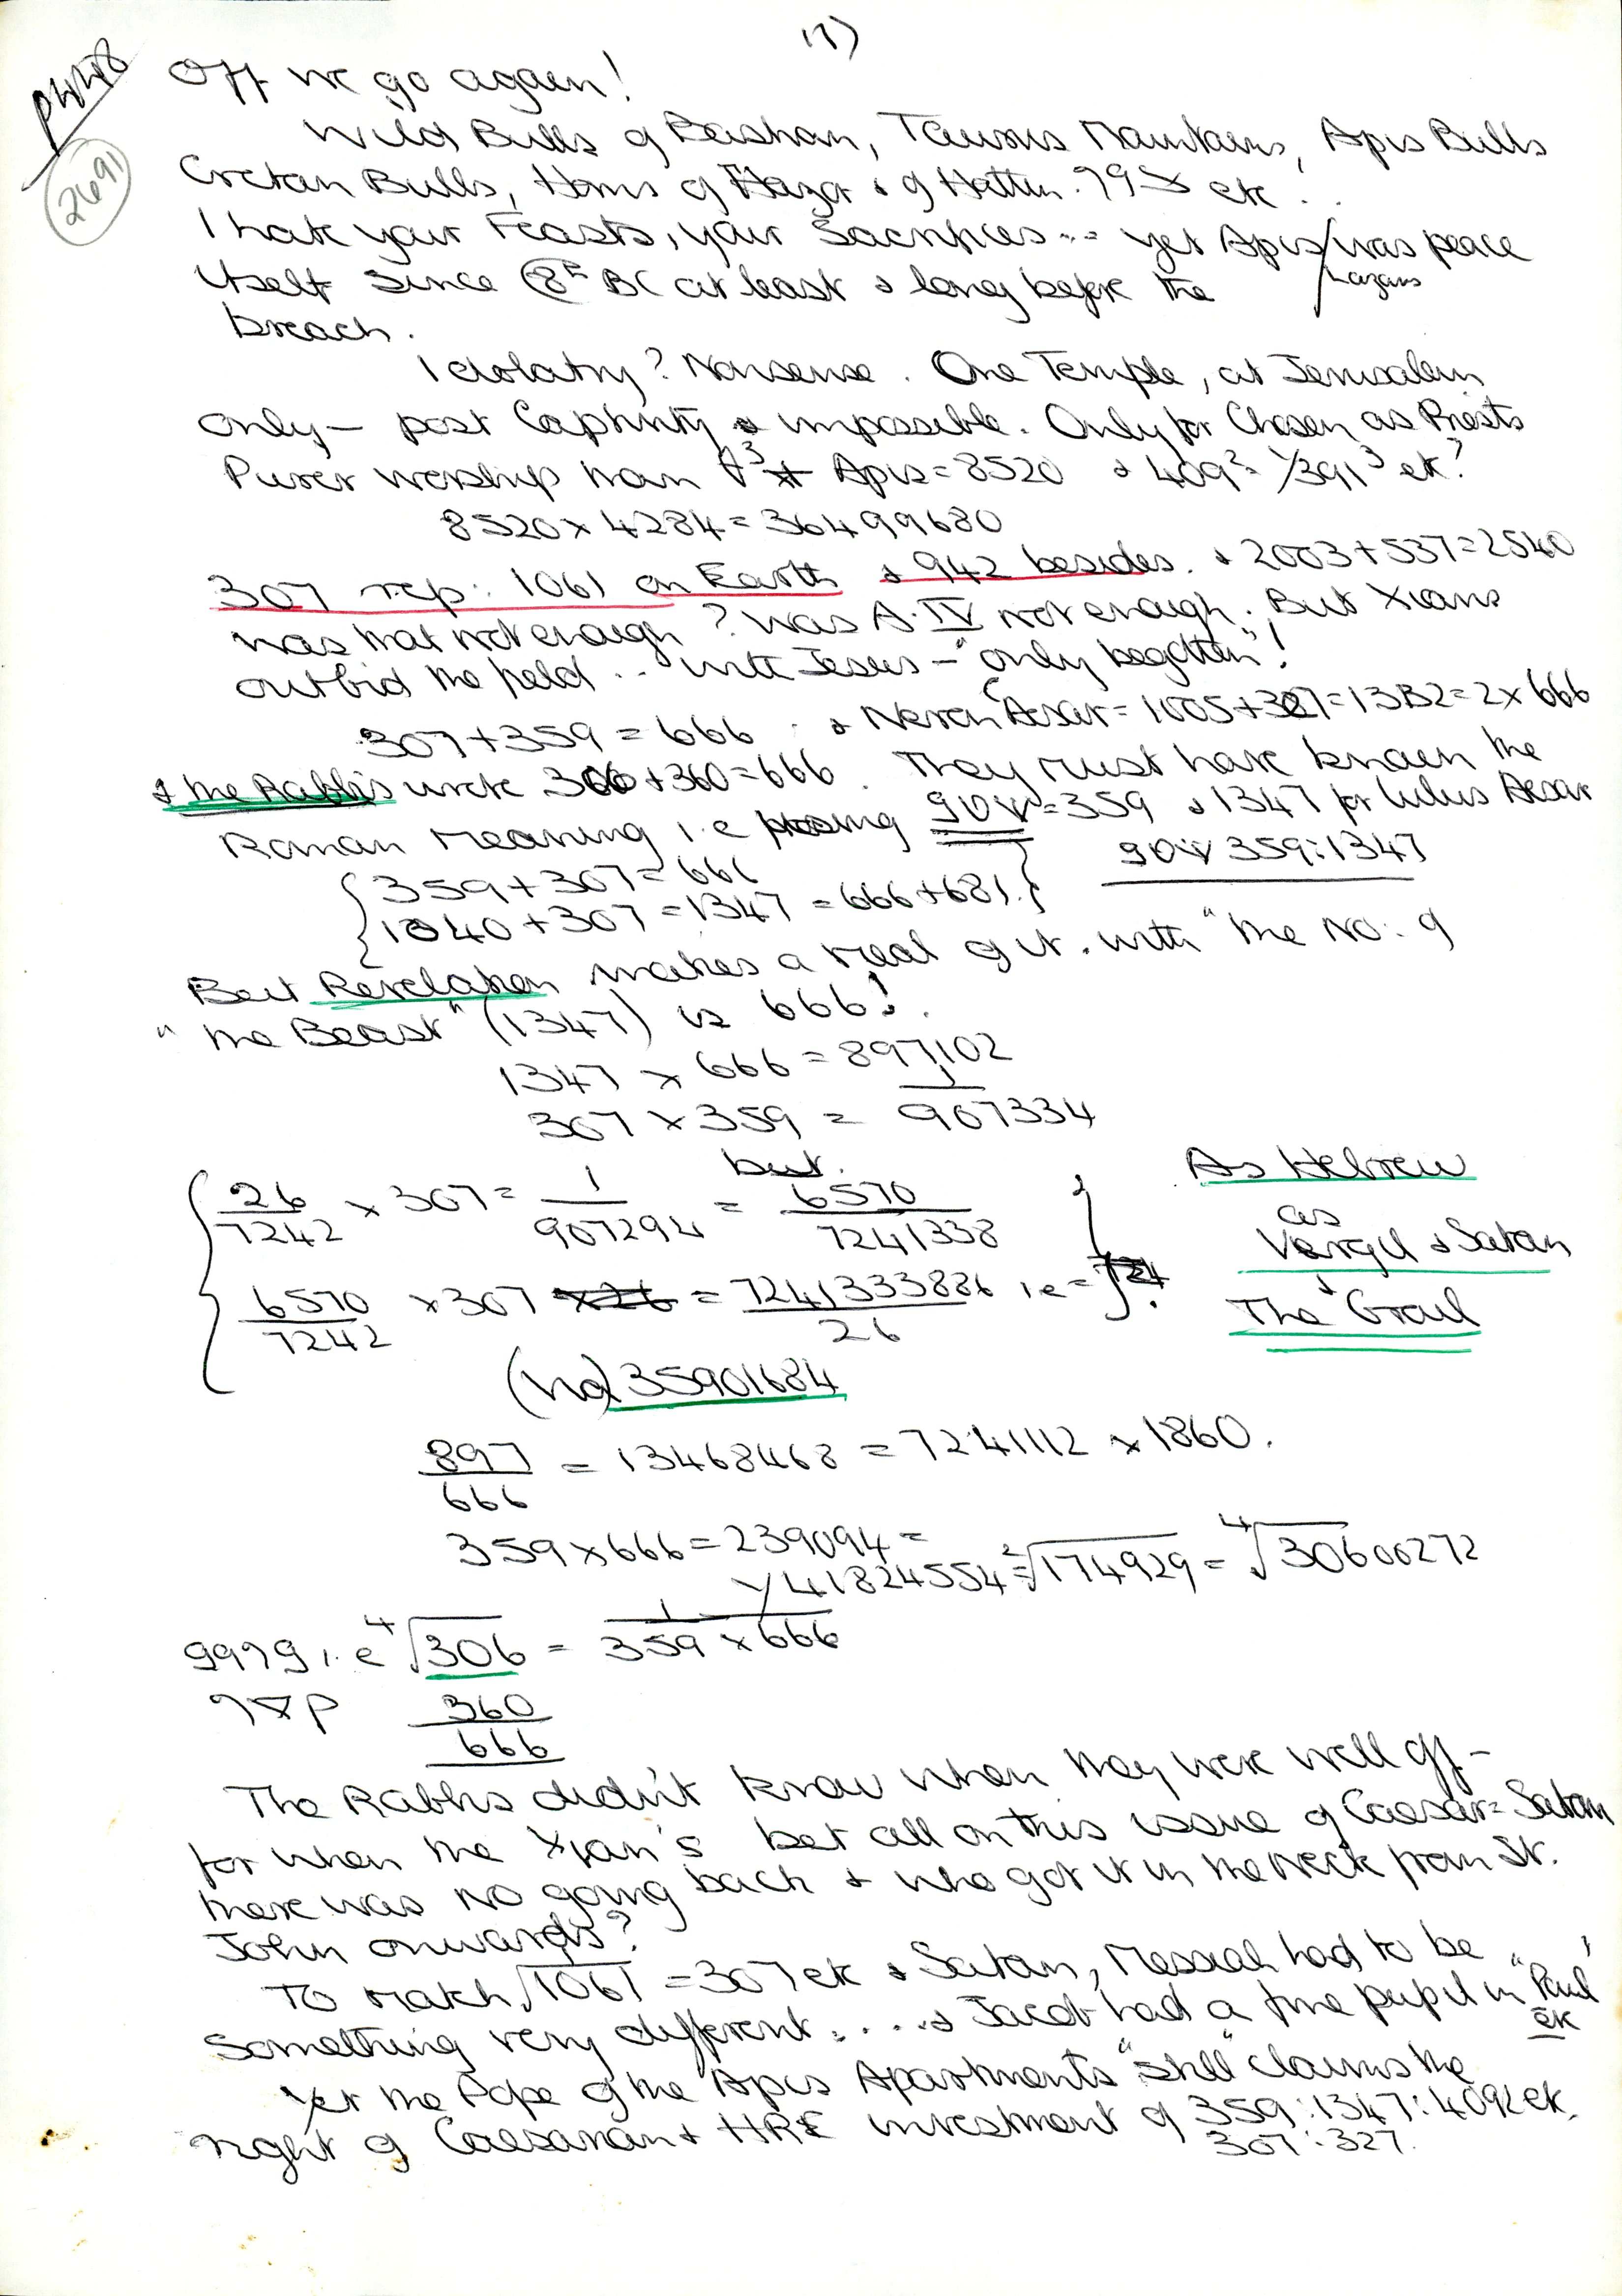 (1)
Off we go again!
2691
Wild Bulls of Bashan, Taurus Mountains, Apis Bulls
Cretan Bulls, Horns of Hazor & of Hattin. etc ..
I hate your Feasts, your Sacrifices ... yet Apis / was peace
Lazarus
itself since 8th BC at least & long before the
breach.
Idolatry? Nonsense. One Temple, at Jerusalem
only — post Captivity & impossible. Only for Chosen as Priests
Purer worship than Apis = 8520 & 409² = 1/391³ etc?
8520 x 4284 = 36499680
307 rep: 1061 on Earth & 942 besides. & 2003+537=2540
was that not enough? Was A.IV not enough. But Xians
outbid the field .. with Jesus — "only begotten"!
307+359 = 666 & Neron Aesar = 1005+327=1332=2x666
& the Rabbis wrote 306+360=666. They must have known the
Roman meaning i.e. = 359 & 1347 for Julius Aesar
359:1347
359+307=666
1040+307 = 1347 = 666+681.
But Revelation makes a meal of it. with "the No: of
"the Beast" (1347) is 666!
1347 x 666 = 897102
307 x 359 = 1/907334
but.
26/7242 x 307 = 1/907294 = 6570/7241338
6570/7242 x 307 = 7241333886/26 i.e =
As Hebrew
as
Vergil & Satan
&
The Grail
(No) 35901684
897/666 = 13468468 = 7241112 x 1860.
359 x 666 = 239094 =
1/41824554 = ²√174929 = ⁴√30600272
i.e ⁴√306 = 1/359 x 666
360
666
The Rabbis didn't know when they were well off -
for when the Xian's bet all on this issue of Caesar = Satan
there was no going back & who got it in the neck from St.
John onwards?
To match √1061 = 307 etc & Satan, Messiah had to be
something very different .... & Jacob had a fine pupil in "Paul"
etc
Yet the Pope of the Apis Apartments "still" claims the
right of Caesarian & HRE investment of 359:1347:4092 etc.
307:327.